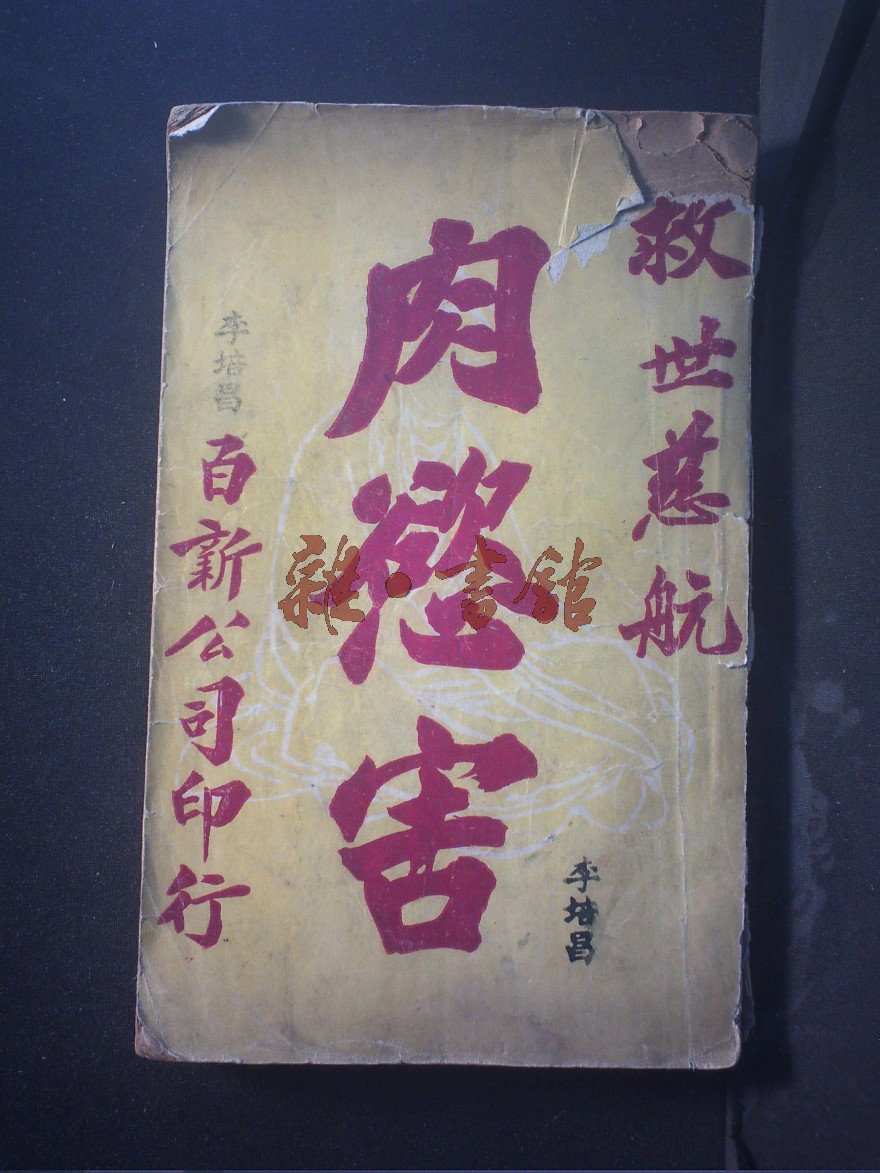 救世慈航
肉慾害
李培昌
李培昌
百新公司印行
雜·書館